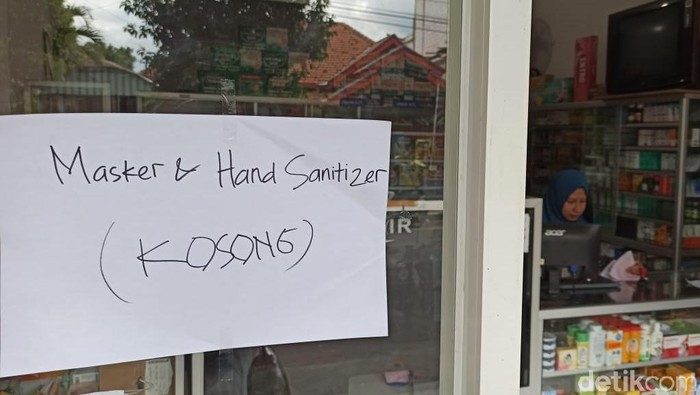 Masker & Hand Sanitizer
(KOSONG)
IR
acer
detikcom